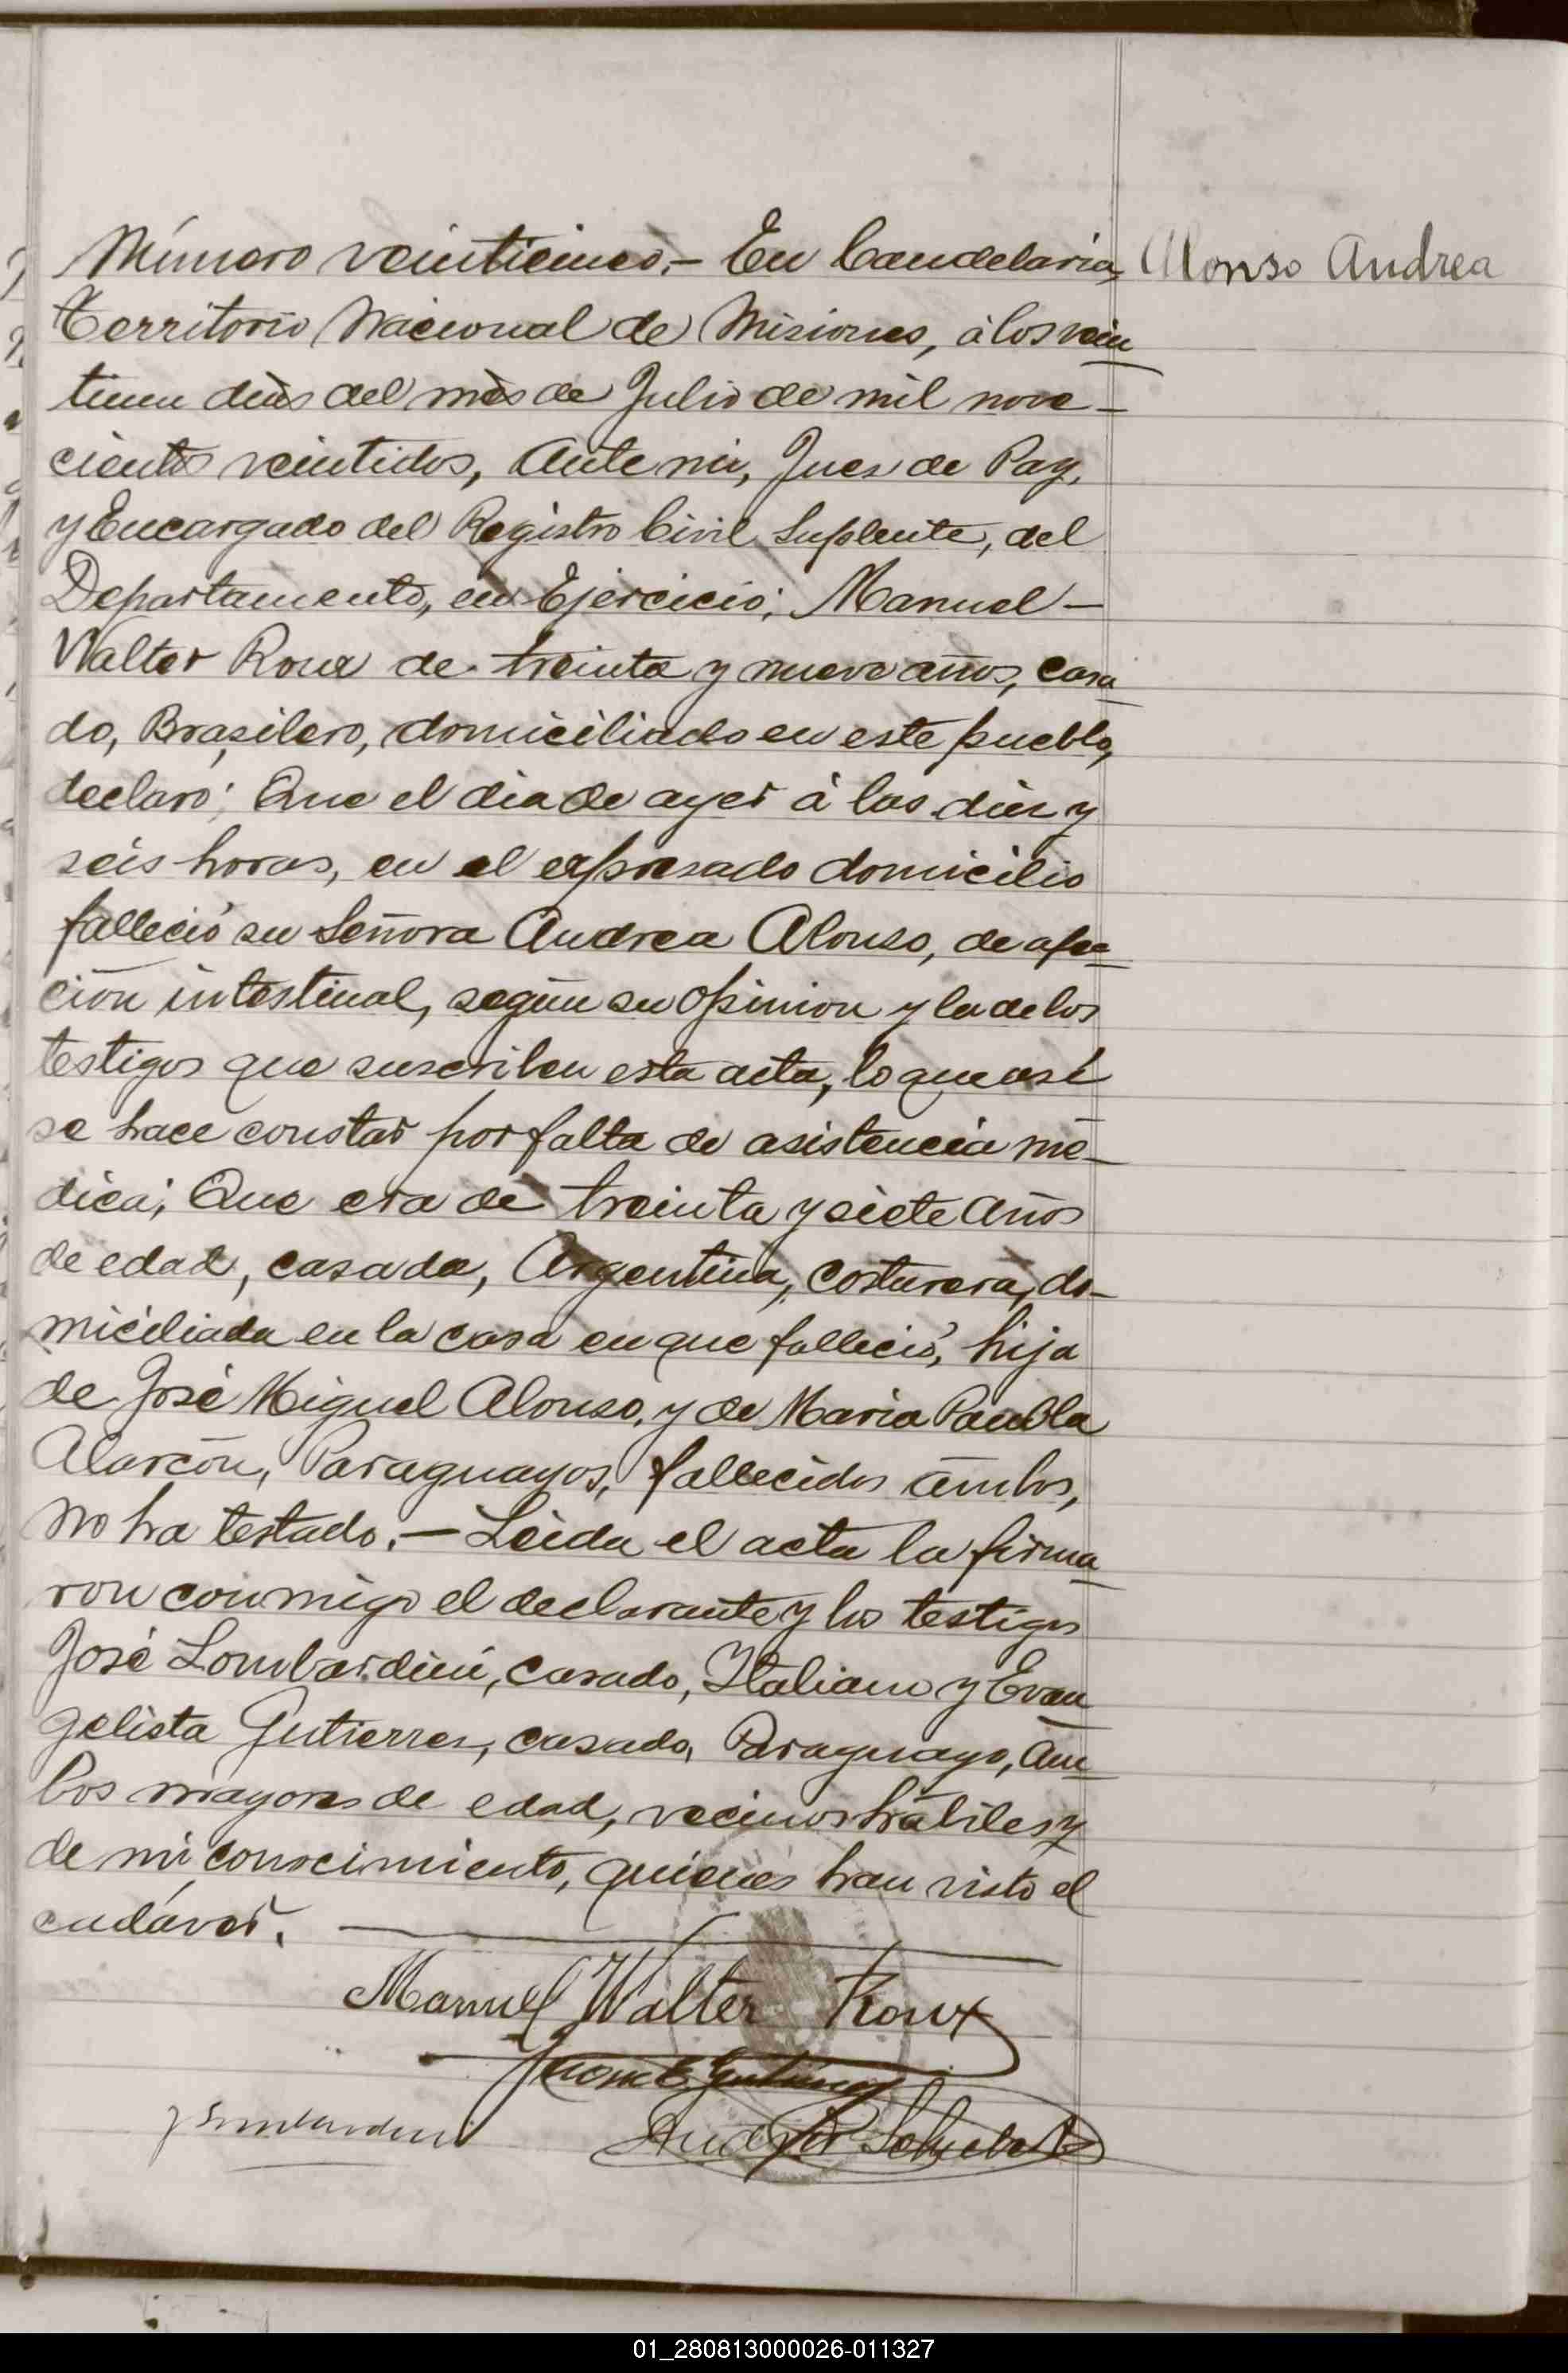 Número veinticinco.- En Candelaria, Alonso Andrea
Territorio Nacional de Misiones, á los vein
tiun dias del mes de Julio de mil nove-
cientos veintidos, Ante mi, Juez de Paz,
y Encargado del Registro Civil Suplente, del
Departamento, en Ejercicio; Manuel-
Walter Roux de treinta y nueve años, casa
do, Brasilero, domiciliado en este pueblo,
declaró: Que el dia de ayer á las diez y
seis horas, en el expresado domicilio
falleció su Señora Andrea Alonso, de afec
ción intestinal, según su opinion y la de los
testigos que suscriben esta acta, lo que asi
se hace constar por falta de asistencia mé-
dica; Que era de treinta y siete años
de edad, casada, Argentina, costurera, do-
miciliada en la casa en que falleció, hija
de José Miguel Alonso, y de Maria Paubla
Alarcón, Paraguayos, fallecidos ámbos,
no ha testado.- Leida el acta la firma
ron conmigo el declarante y los testigos
José Lombardini, casado, Italiano y Evan
gelista Gutierrez, casado, Paraguayo, am
bos mayores de edad, vecinos hábiles y
de mi conocimiento, quienes han visto el
cadáver.
Manuel Walter Roux
J Lombardini
01_280813000026-011327